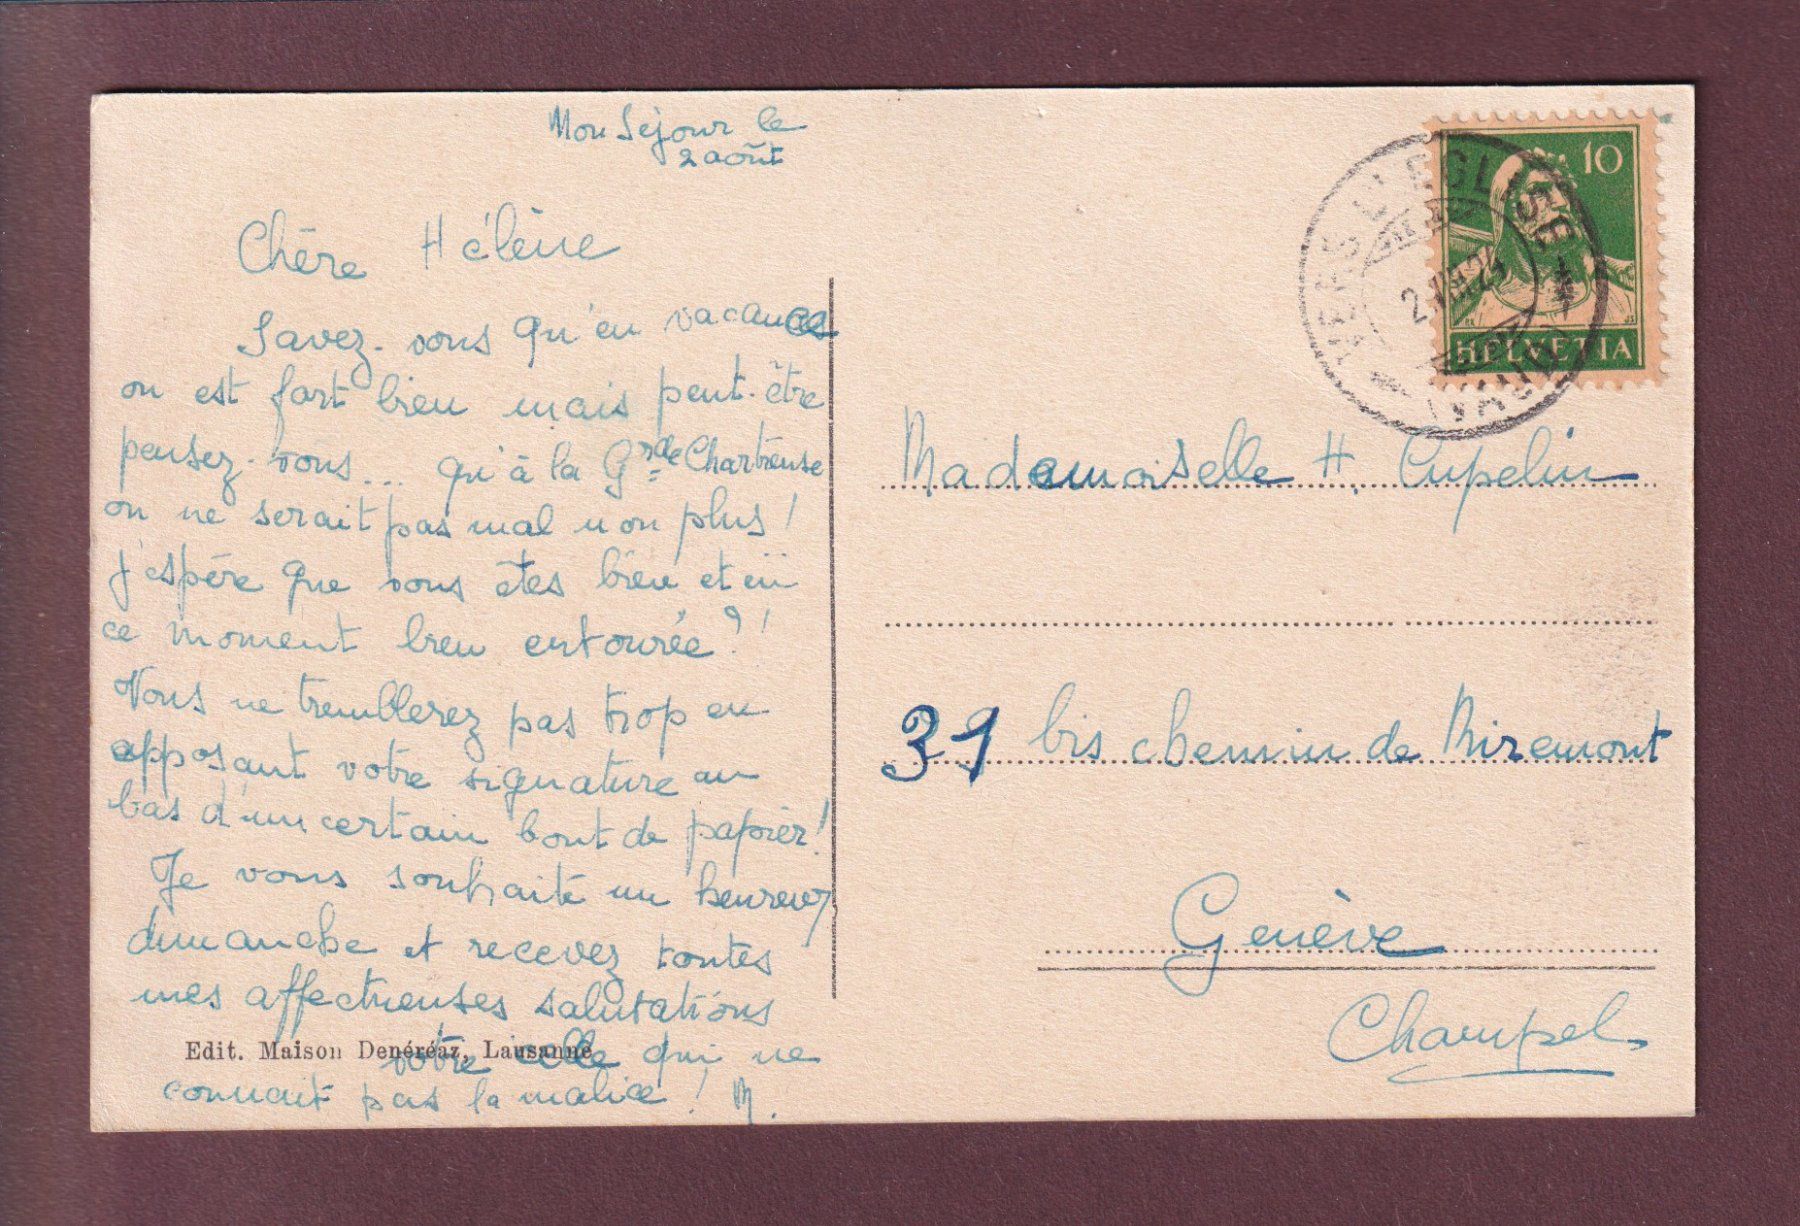 Mon Séjour le
2 août
Chère Hélène
Savez-vous qu'en vacances
on est fort bien mais peut-être
pensez-vous... qu'à la Grde Chartreuse
on ne serait pas mal non plus !
J'espère que vous êtes bien et en
ce moment bien entourée ?!
Vous ne tremblerez pas trop en
apposant votre signature au
bas d'un certain bout de papier !
Je vous souhaite un heureux
dimanche et recevez toutes
mes affectueuses salutations
votre celle qui ne
connait pas la malice ! M.
Edit. Maison Denéréaz, Lausanne
10
HELVETIA
L'EGLISE
(VAUD)
Mademoiselle H. Cupelin
39 bis chemin de Miremont
Genève
Champel